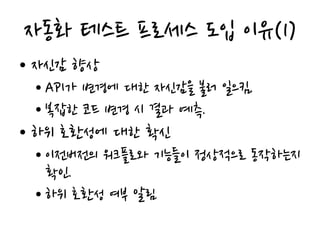 자동화 테스트 프로세스 도입 이유(1)
• 자신감 향상
• API가 변경에 대한 자신감을 불러 일으킴.
• 복잡한 코드 변경 시 결과 예측.
• 하위 호환성에 대한 확신
• 이전버전의 워크플로와 기능들이 정상적으로 동작하는지
확인.
• 하위 호환성 여부 알림